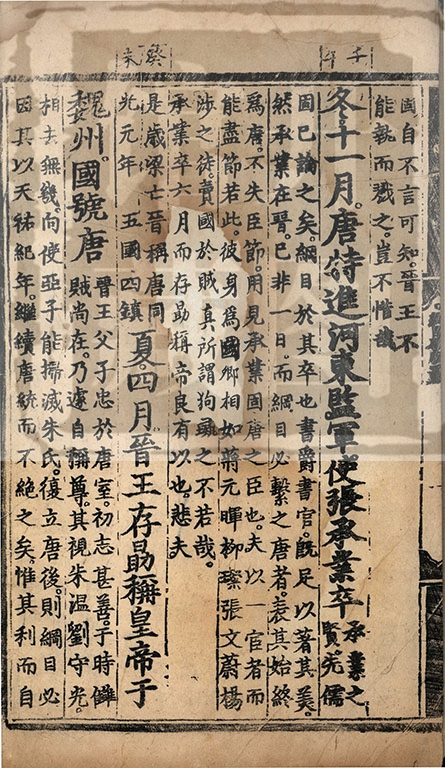 午
國自不言可知。晉王不
能執而戮之。豈不惜哉
冬十一月。唐特進河東監軍使張承業卒
承業之
賢。先儒
固已論之矣。綱目於其卒也書爵書官。既足以著其美。
然承業在晉。已非一日。而綱目必繫之唐者。表其始終
爲唐。不失臣節。用見承業固唐之臣也。夫以一官者而
能盡節若此。彼身爲國卿相如蔣元暉柳璨張文蔚楊
涉之徒。賣國於賊。真所謂狗彘之不若哉。
承業卒六月而存勗稱帝。良有以也。悲夫
癸未
是歲梁亡晉稱唐同
光元年 五國四鎮
夏。四月。晉王存勗稱皇帝于
魏州。國號唐
晉王父子忠於唐室。初志甚善。于時讎
賊尚在。乃遽自稱尊。其視朱溫劉守光。
相去無幾。向使亞子能掃滅朱氏。復立唐後。則綱目必
因其以天祐紀年。繼續唐統而不絕之矣。惟其利而自